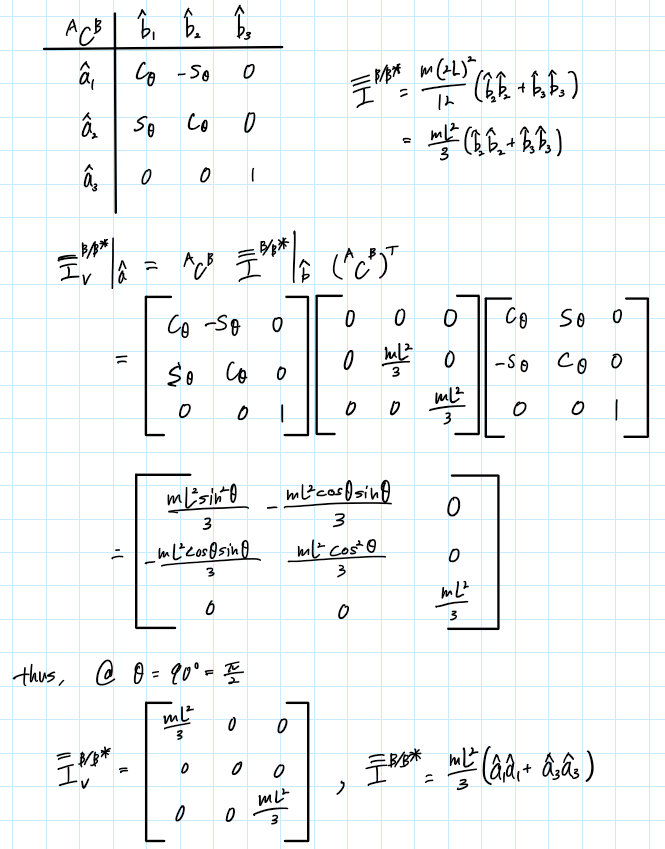 ᴬCᴮ b̂₁ b̂₂ b̂₃
â₁ Cθ -Sθ 0
â₂ Sθ Cθ 0
â₃ 0 0 1
I^{B/B*} = m(2L)²/12 (b̂₂b̂₂ + b̂₃b̂₃)
= mL²/3 (b̂₂b̂₂ + b̂₃b̂₃)
I_V^{B/B*}|â = ᴬCᴮ I^{B/B*}|b̂ (ᴬCᴮ)ᵀ
= [Cθ -Sθ 0] [0 0 0] [Cθ Sθ 0]
[Sθ Cθ 0] [0 mL²/3 0] [-Sθ Cθ 0]
[0 0 1] [0 0 mL²/3] [0 0 1]
= [mL²sin²θ/3 -mL²cosθsinθ/3 0]
[-mL²cosθsinθ/3 mL²cos²θ/3 0]
[0 0 mL²/3]
thus, @ θ = 90° = π/2
I_V^{B/B*} = [mL²/3 0 0]
[0 0 0]
[0 0 mL²/3] , I^{B/B*} = mL²/3 (â₁â₁ + â₃â₃)